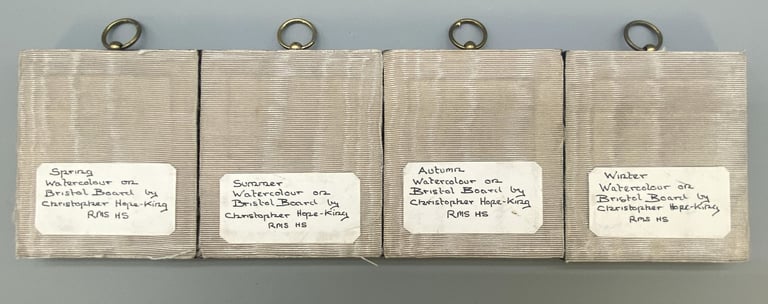 Spring
Watercolour on
Bristol Board by
Christopher Hope-King
RMS HS
Summer
Watercolour on
Bristol Board by
Christopher Hope-King
RMS HS
Autumn
Watercolour on
Bristol Board by
Christopher Hope-King
RMS HS
Winter
Watercolour on
Bristol Board by
Christopher Hope-King
RMS HS